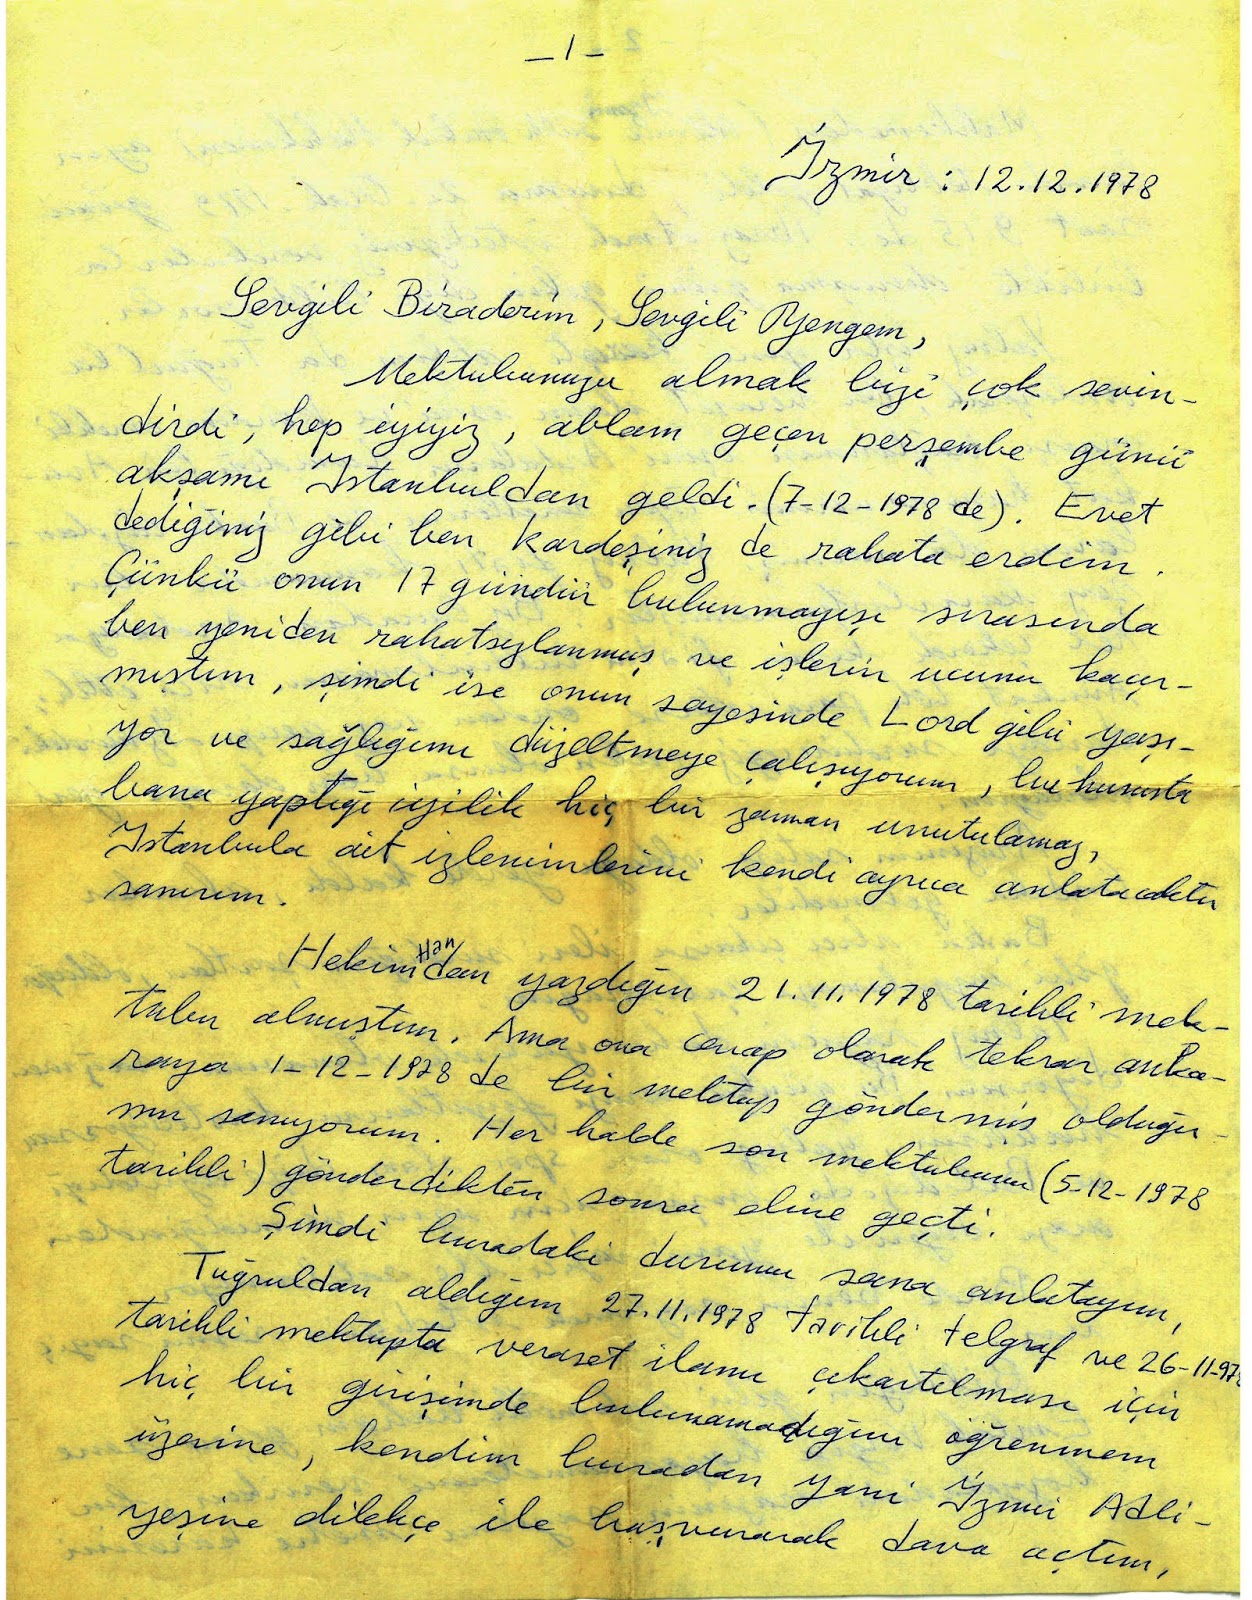 - 1 -
İzmir : 12.12.1978
Sevgili Biraderim, Sevgili Yengem,
Mektubunuzu almak bizi çok sevin-
dirdi, hep iyiyiz, ablam geçen perşembe günü
akşamı İstanbuldan geldi. (7-12-1978 de). Evet
dediğiniz gibi ben kardeşiniz de rahata erdim.
Çünkü onun 17 gündür bulunmayışı sırasında
ben yeniden rahatsızlanmış ve işlerin ucunu kaçır-
mıştım, şimdi ise onun sayesinde Lord gibi yaşı-
yor ve sağlığımı düzeltmeye çalışıyorum, bu hususta
bana yaptığı iyilik hiç bir zaman unutulamaz,
İstanbula ait izlenimlerini kendi ayrıca anlatacaktır
sanırım.
Hekimhandan yazdığın 21.11.1978 tarihli mek-
tubu almıştım. Ama ona cevap olarak tekrar anka-
raya 1-12-1978 de bir mektup göndermiş olduğu-
mu sanıyorum. Her halde son mektubunu (5-12-1978
tarihli) gönderdikten sonra eline geçti.
Şimdi buradaki durumu sana anlatayım,
Tuğruldan aldığım 27.11.1978 tarihli telgraf ve 26-11-978
tarihli mektupta veraset ilamı çıkartılması için
hiç bir girişimde bulunamadığını öğrenmem
üzerine, kendim buradan yani İzmir Adli-
yeşine dilekçe ile başvurarak dava açtım,